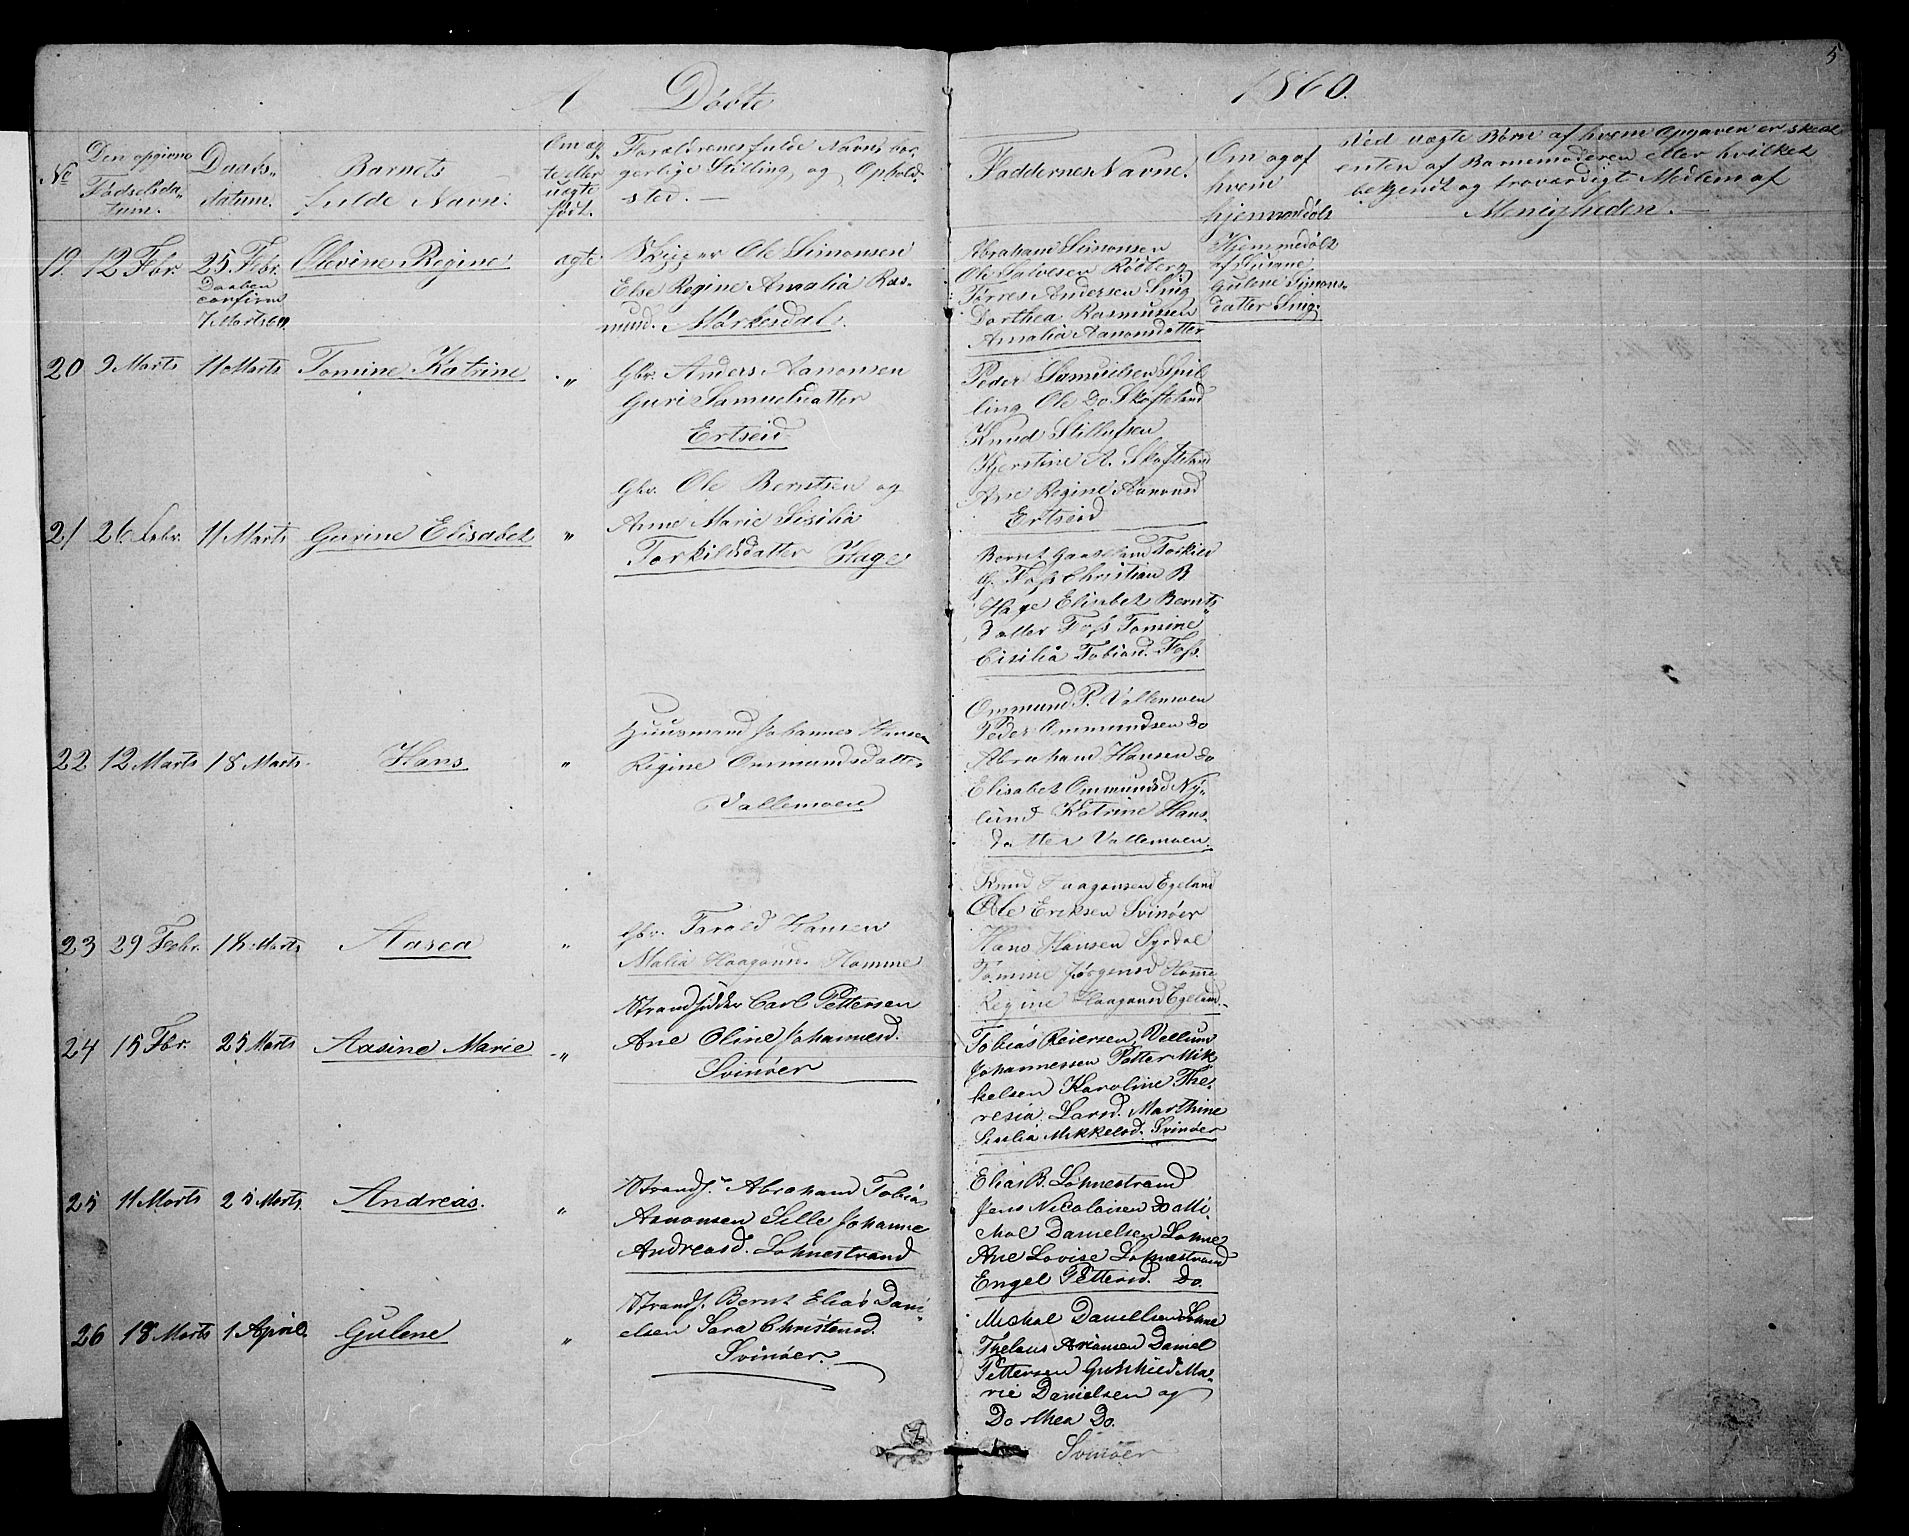 A Döbte 1860.
5
No
Den opgivne Fødselsdatum.
Daabsdatum.
Barnets fulde Navn.
Om ægte eller uægte født.
Forældrenes fulde Navne borgerlige Stilling, og Opholdsted. —
Faddernes Navne.
Om og af hvem hjemmedøbt
Ved uægte Børn af hvem Opgaven er skeet
enten af Barnemoderen eller hvilket
bekjendt og troværdigt Medlem af
Menigheden. —
19. 12 Febr 25 Febr. Olevine Regine ægte
Daaben
confirm
7 Marts 60
Skipper Ole Simonsen
Else Regine Amalia Ras-
musd. Mørkesdal.
Abrahand Simonsen
Ole Salvesen Rödberg
Tørres Andersen Snig
Dorthea Rasmussen
Amalia Aanonsdatter
Hjemmedøbt
af Susane
Gulene Simons-
datter Snig
20 9 Marts 11 Marts Tomine Katrine "
Gbr. Anders Aanonsen
Guri Samuelsdatter
Ertseid
Peder Samuelsen Spil-
ling Ole Do Skofteland
Knud Stillufsen
Kjerstine A. Skofteland
Ane Regine Aanonsd
Ertseid
21 26 Febr. 11 Marts Gurine Elisabet "
Gbr. Ole Berntsen og
Anne Marie Sisilia
Torkildsdatter Hage
Bernt Gaaseland Torkild
G. Foss Christian B
Hage Elisabet Bernts
datter Foss Tomine
Cisilia Tobiasd. Foss.
22 12 Marts 18 Marts. Hans "
Huusmand Johannes Hansen
Regine Ommundsdatter
Vallemoen
Ommund P. Vallemoen
Peder Ommundsen do
Abraham Hansen do
Elisabet Ommundsd Ny-
lund Katrine Hans-
datter Vallemoen.
23 29 Febr. 18 Marts Aasea "
Gbr. Tarald Hansen
Malia Haagonsd. Homme
Knud Haagonsen Egeland
Ole Eriksen Svinøer
Hans Hansen Syrdal
Tomine Jørgensd Home
Regine Haagonsd Egeland.
24 15 Fbr. 25 Marts Aasine Marie "
Strandsidder Carl Pettersen
Ane Oline Johannesd.
Svinøer
Tobias Reiersen Vellum
Johannessen Petter Mik
kelsen Karoline The-
resia Larsd. Marthine
Sesilia Mikkelsd. Svinøer
25 11 Marts 25 Marts. Andreas. "
Strands. Abrahand Tobias
Aanonsen Sille Johanne
Andreasd. Lohnestrand
Elias B. Lohnestrand
Jens Nicolaisen do Mi-
kal Danielsen Lohne
Ane Lovise Lohnestrand
Engel Pettersd. Do.
26 18 Marts 1 April. Gulene "
Strands. Bernt Elias Dani
elsen Sara Christensd.
Svinøer.
Mickal Danielsen Lohne
Thelaus Arianson Daniel
Pettersen Gunhild Ma-
rie Danielsen og
Dorthea Do.
Svinöer